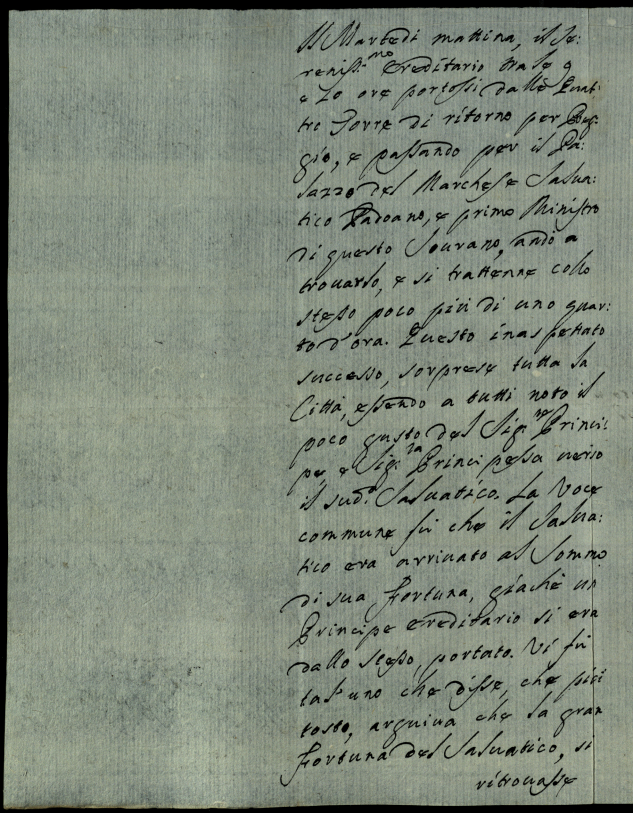 Il Martedi mattina, il Se:
reniss.mo Ereditario tra le 9
e 10 ore portossi dalle Quat:
tro Torri di ritorno per Reg:
gio, e passando per il Pa:
lazzo del Marchese Salua:
tico Padoano, e primo Ministro
di questo Sourano, andò a
trouarlo, e si trattenne collo
stesso poco più di uno quar:
to d'ora. Questo inaspettato
successo, sorprese tutta la
Città, essendo a tutti noto il
poco gusto del Sig.re Princi:
pe, e Sig.ra Principessa uerso
il sud.o Saluatico. La Voce
commune fù che il Salua:
tico era arriuato al Sommo
di sua Fortuna, giachè un
Principe Ereditario si era
dallo stesso, portato. Vi fù
tal'uno che disse, che più
tosto, arguiua che la gran
Fortuna del Saluatico, si
ritrouasse